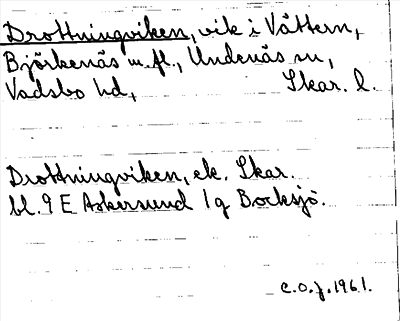 Drottningviken, vik i Vättern,
Björkenäs m.fl., Undenäs sn,
Vadsbo hd, Skar. l.
Drottningviken, ek. Skar.
bl. 9 E Askersund 1 g Bocksjö.
C.O.J. 1961.